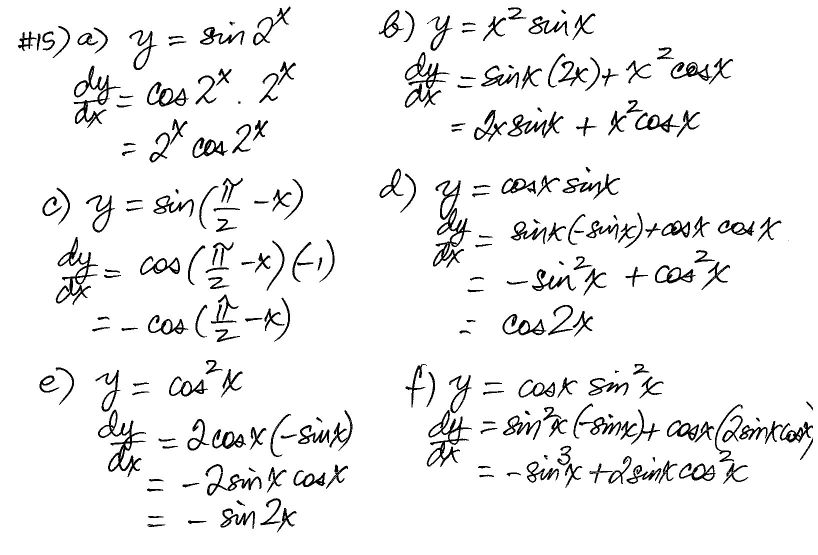 #15) a) y = sin 2^x
dy/dx = cos 2^x · 2^x
= 2^x cos 2^x
b) y = x² sin x
dy/dx = sin x (2x) + x² cos x
= 2x sin x + x² cos x
c) y = sin(π/2 - x)
dy/dx = cos(π/2 - x)(-1)
= - cos(π/2 - x)
d) y = cos x sin x
dy/dx = sin x (-sin x) + cos x cos x
= - sin² x + cos² x
= cos 2x
e) y = cos² x
dy/dx = 2 cos x (-sin x)
= - 2 sin x cos x
= - sin 2x
f) y = cos x sin² x
dy/dx = sin² x (-sin x) + cos x (2 sin x cos x)
= - sin³ x + 2 sin x cos² x